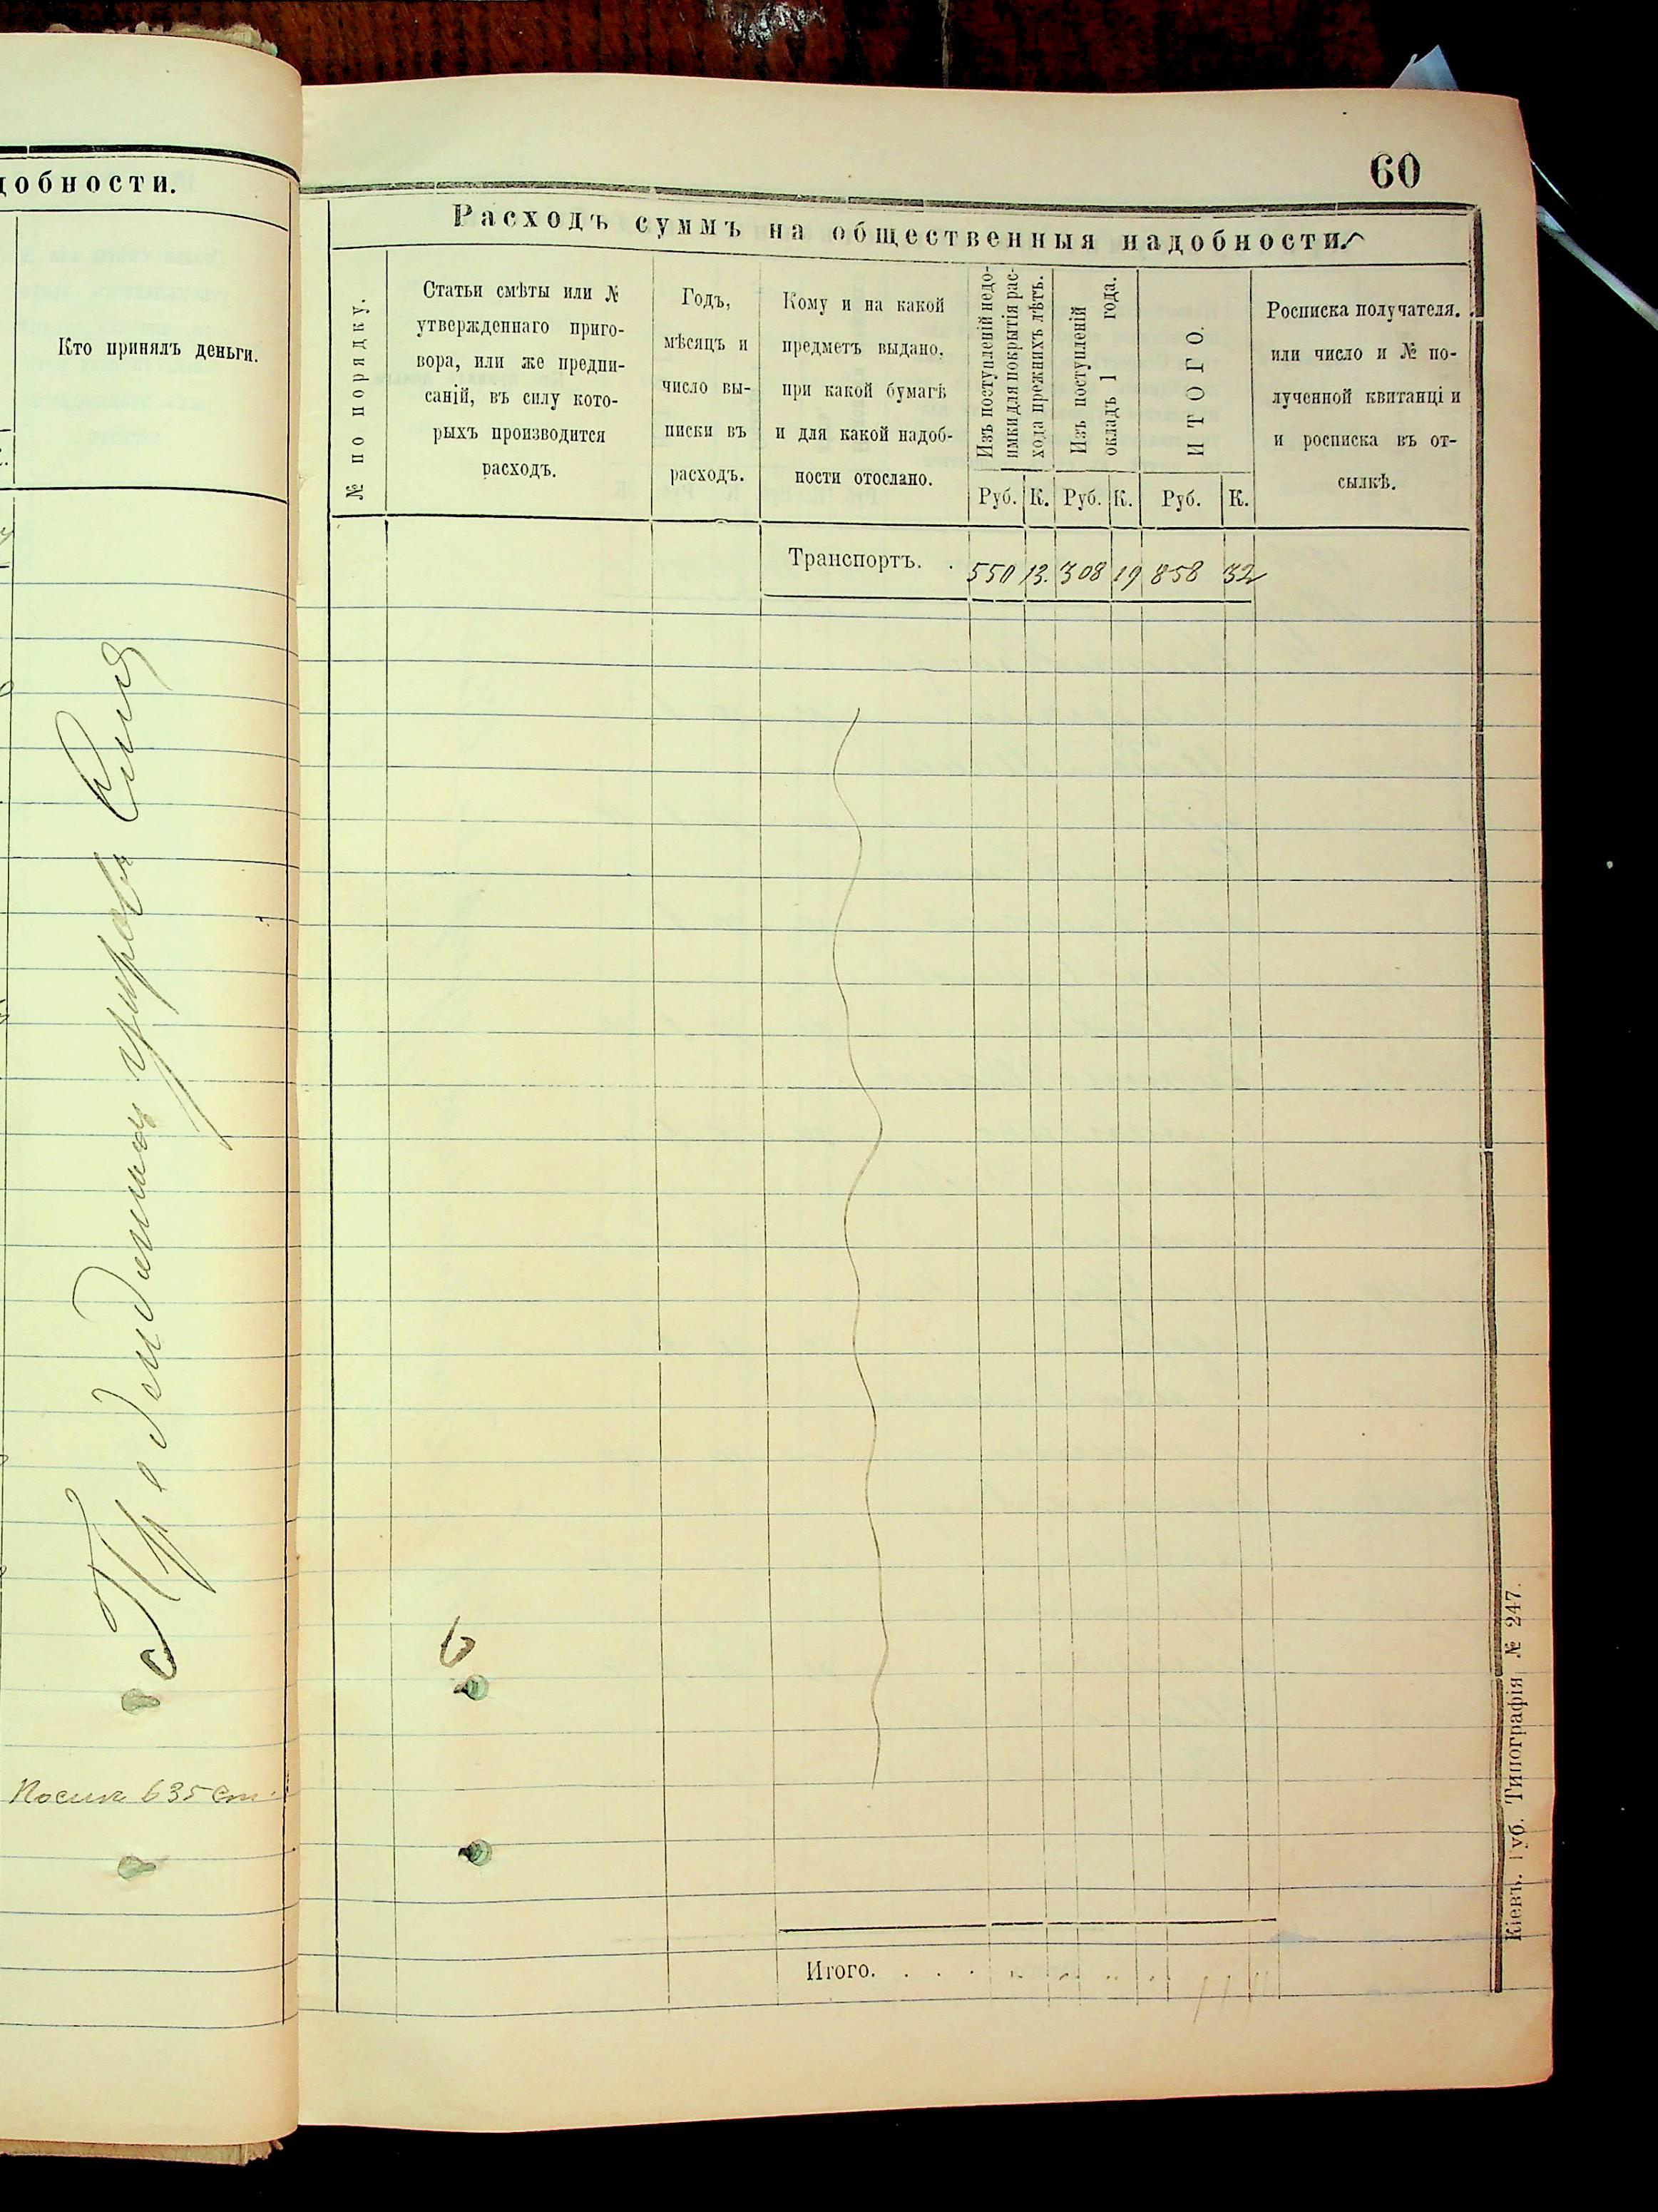 добности.
Кто принялъ деньги.
60
Расходъ суммъ на общественныя надобности.
№ по порядку.
Статьи смѣты или №
утвержденнаго приго-
вора, или же предпи-
саній, въ силу кото-
рыхъ производится
расходъ.
Годъ,
мѣсяцъ и
число вы-
писки въ
расходъ.
Кому и на какой
предметъ выдано,
при какой бумагѣ
и для какой надоб-
ности отослано.
Изъ поступленій недо-
имки для покрытія рас-
хода прежнихъ лѣтъ.
Изъ поступленій
окладъ 1 года.
ИТОГО.
Росписка получателя.
или число и № по-
лученной квитанці и
и росписка въ от-
сылкѣ.
Руб. К. Руб. К. Руб. К.
Транспортъ. . 550 13. 308 19 858 32
6
635 ст.
Итого. . . . . . . .
Кіевъ. Губ. Типографія № 247.